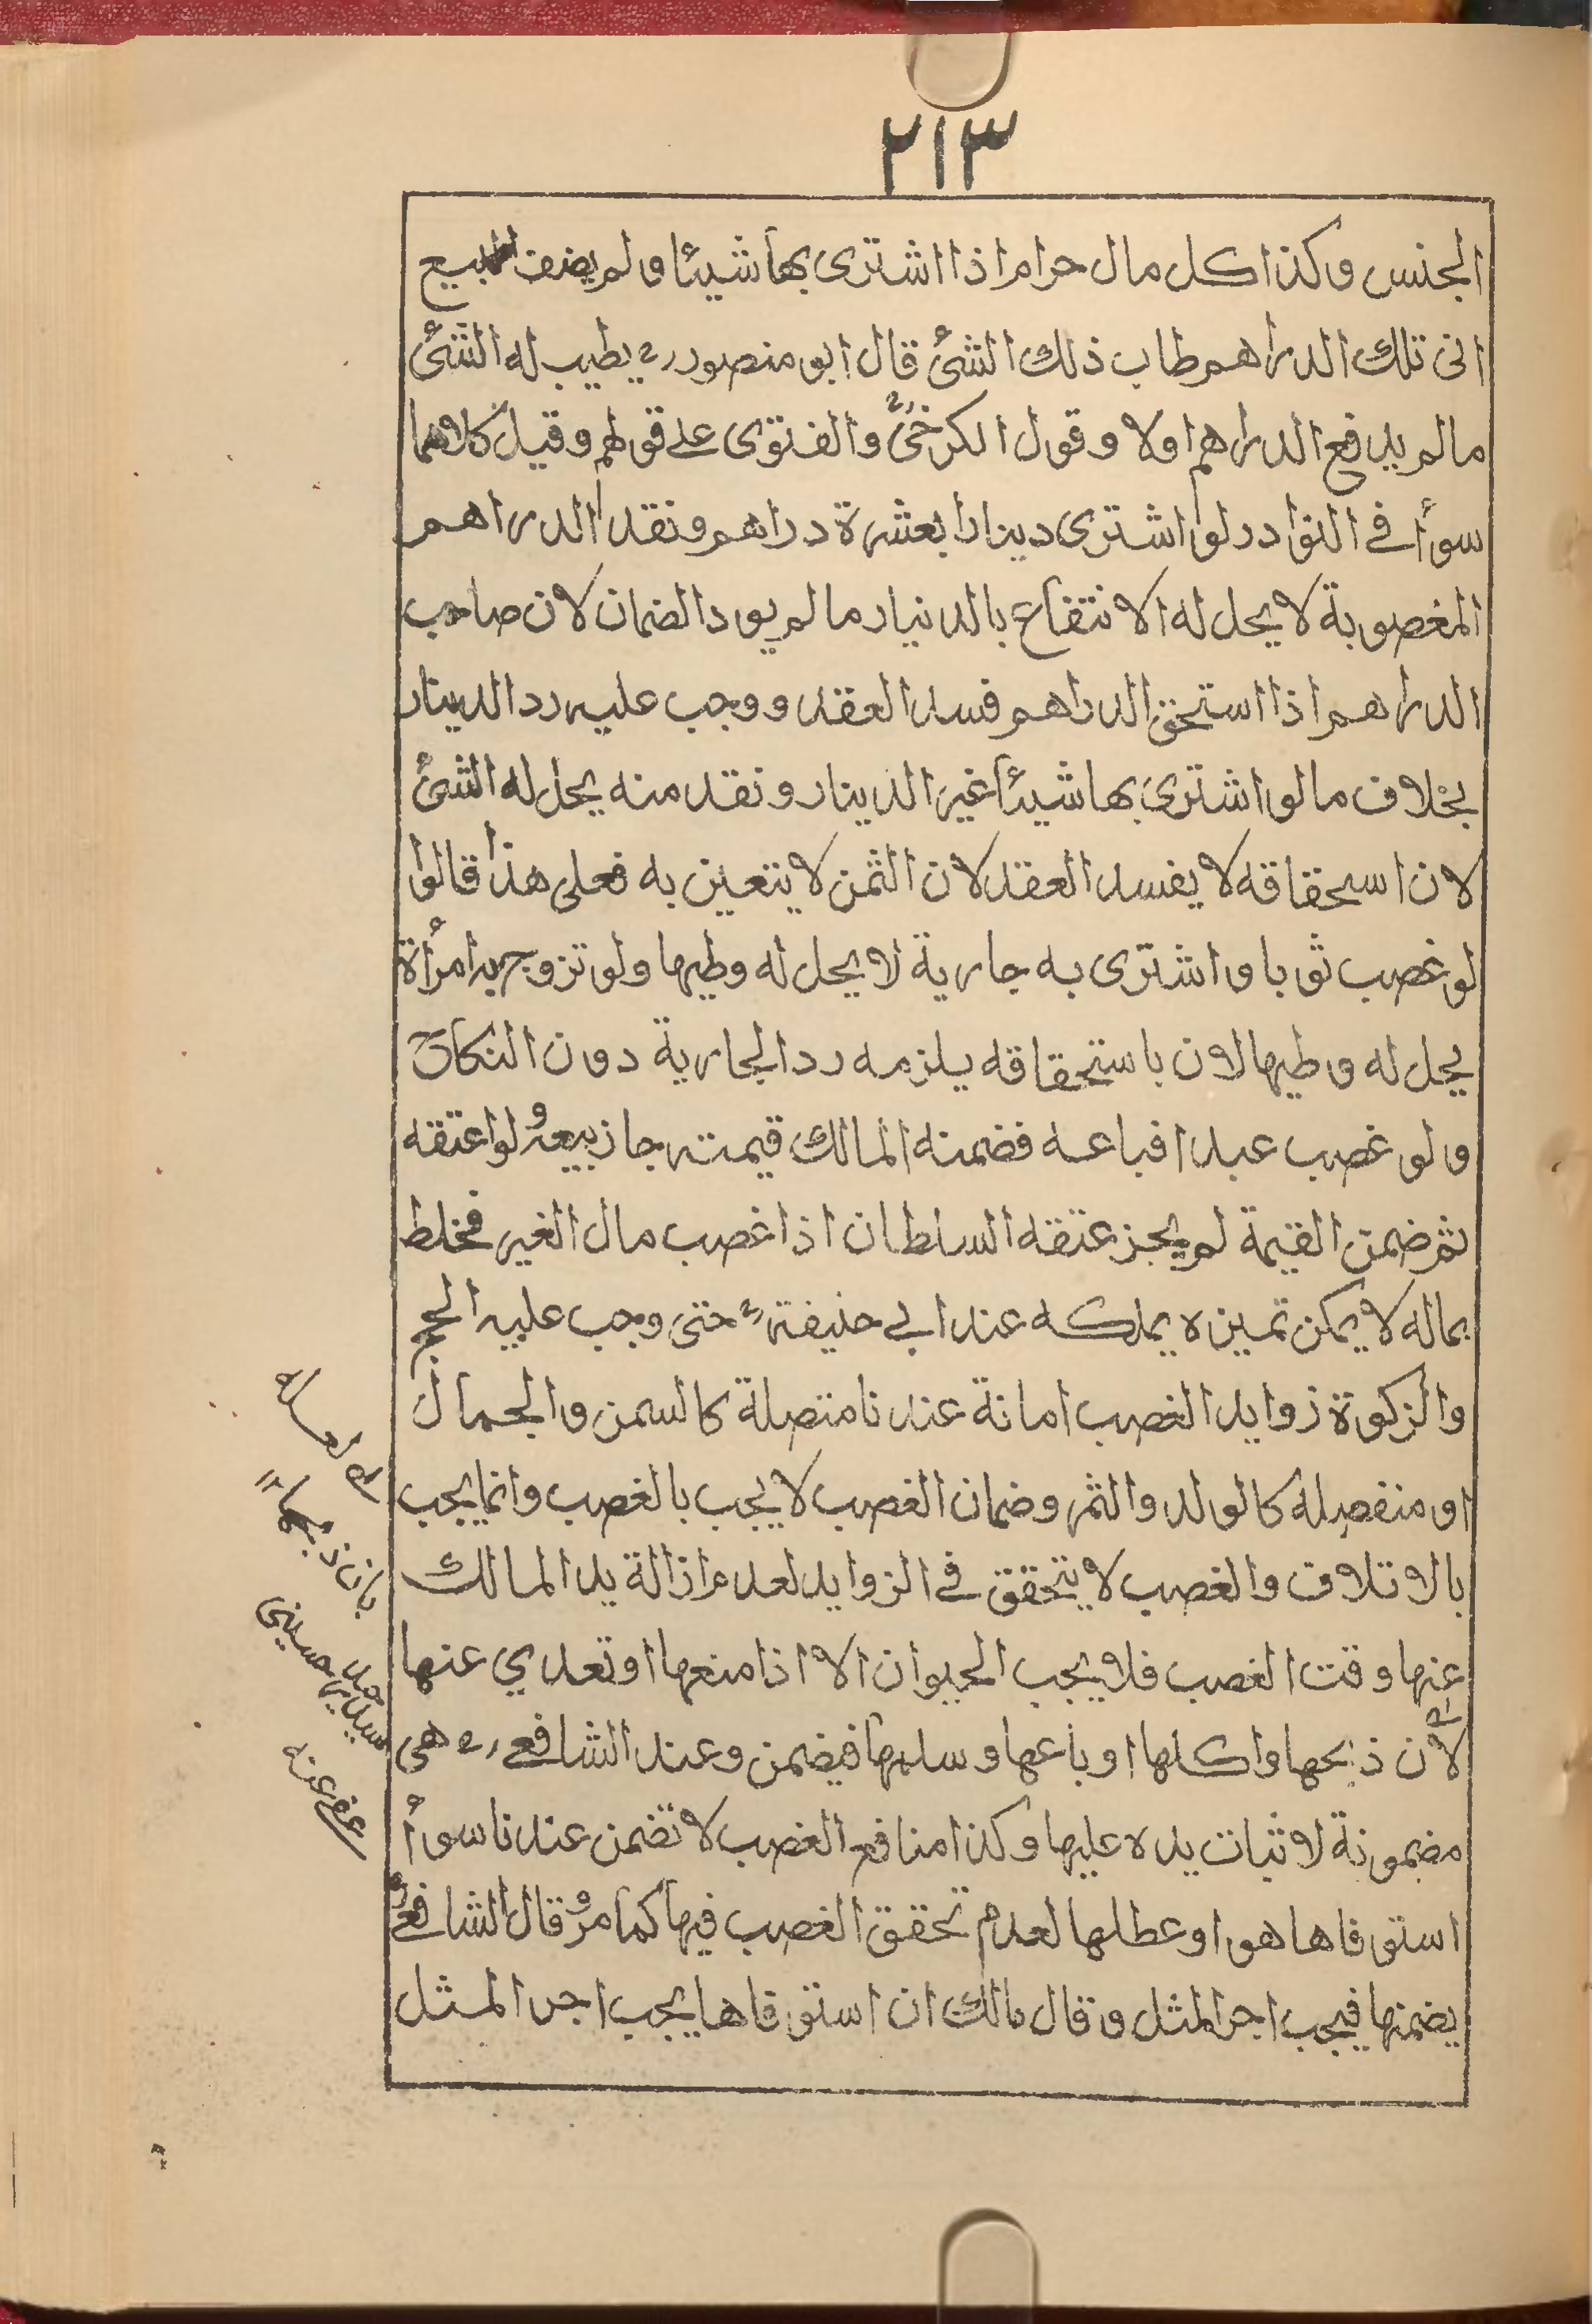 ٢١٣
الجنس وكذا كل مال حرام اذا اشترى بها شيئا ولم يضف البيع
الى تلك الدراهم طاب ذلك الشئ قال ابو منصور رح يطيب له الشئ
مالم يدفع الدراهم اولا وقول الكرخي رح والفتوى على قولهم وقيل كلاهما
سوأ في النوادر لو اشترى دينارا بعشرة دراهم ونقد الدراهم
المغصوبة لا يحل له الانتفاع بالدنيار مالم يود الضمان لان صاحب
الدراهم اذا استحق الدراهم فسد العقد ووجب عليه رد الدينار
بخلاف مالو اشترى بها شيئا غير الدينار ونقد منه يحل له الشئ
لان اسحقاقه لا يفسد العقد لان الثمن لا يتعين به فعلى هذا قالوا
لو غصب ثوبا واشترى به جارية لا يحل له وطيها ولو تزوج به امرأة
يحل له وطيها لان باستحقاقه يلزمه رد الجارية دون النكاح
ولو غصب عبدا فباعه فضمنه المالك قيمته جاز بيعه ولو اعتقه
ثم ضمن القيمة لم يجز عتقه السلطان اذا غصب مال الغير فخلط
بماله لا يمكن تميزه يملكه عند ابي حنيفة رح حتى وجب عليه الحج
والزكوة زوايد الغصب امانة عندنا متصلة كالسمن والجمال
او منفصلة كالولد والثمر وضمان الغصب لا يجب بالغصب وانما يجب
بالاتلاف والغصب لا يتحقق في الزوايد لعدم ازالة يد المالك
عنها وقت الغصب فلا يجب الحيوان الا اذا منعها او تعدي عنها
لان ذبحها واكلها او باعها وسلمها فيضمن وعند الشافعي رح هى
مضمونة لاثبات يده عليها وكذا منافع الغصب لا تضمن عندنا سوأ
استوفاها هو او عطلها لعدم تحقق الغصب فيها كما مر وقال الشافعي رح
يضمنها فيجب اجر المثل وقال مالك ان استوفاها يجب اجر المثل
بان ذبحها
حسيني
عفي عنه